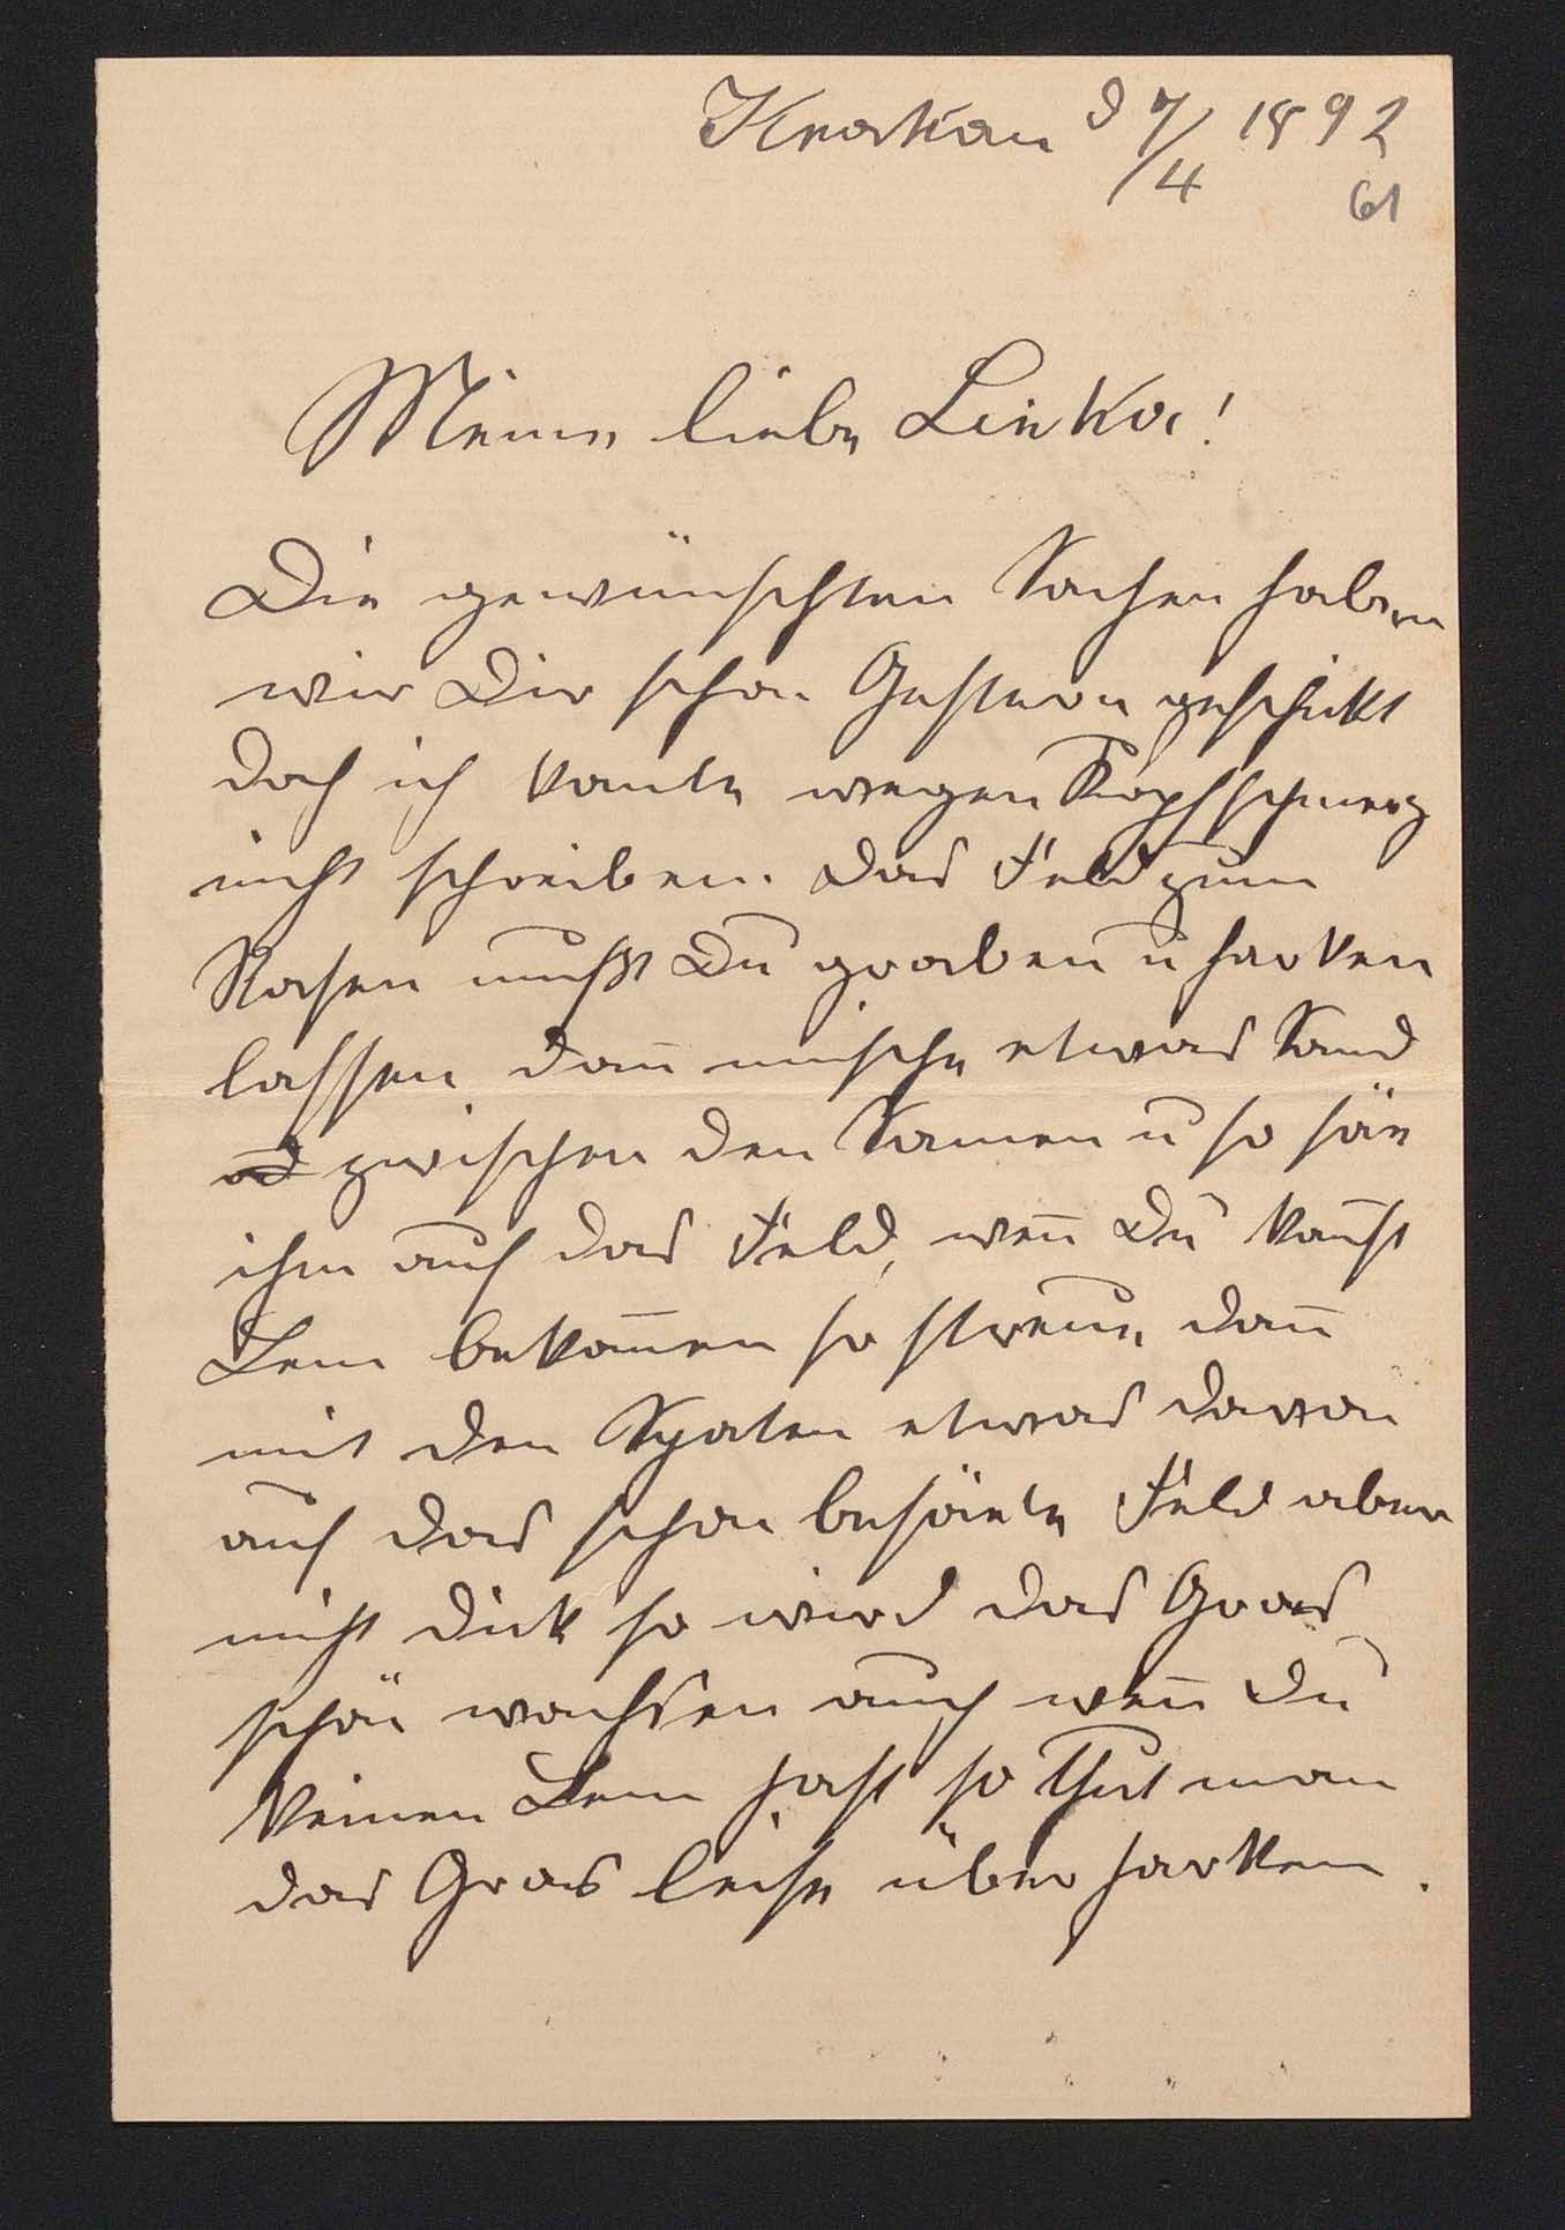 Krakau d 7/4 1892
61
Meine liebe Linka!
Die gewünschten Sachen haben
wir Dir schon Gestern geschikt
doch ich konte wegen Kopfschmerz
nicht schreiben. Das Feld zum
Rasen mußt Du graben u harken
lassen dan̄ mische etwas Sand
zwischen den Samen u so säe
ihm auf das Feld, wen̄ Du kan̄st
Lem bekom̄en so streue dan̄
mit den Spaten etwas davon
auf das schon besäete Feld aber
nicht dick so wird das Gras
schön wachsen auch wen̄ Du
keinen Lem hast so thut man
das Gras leise über harken.